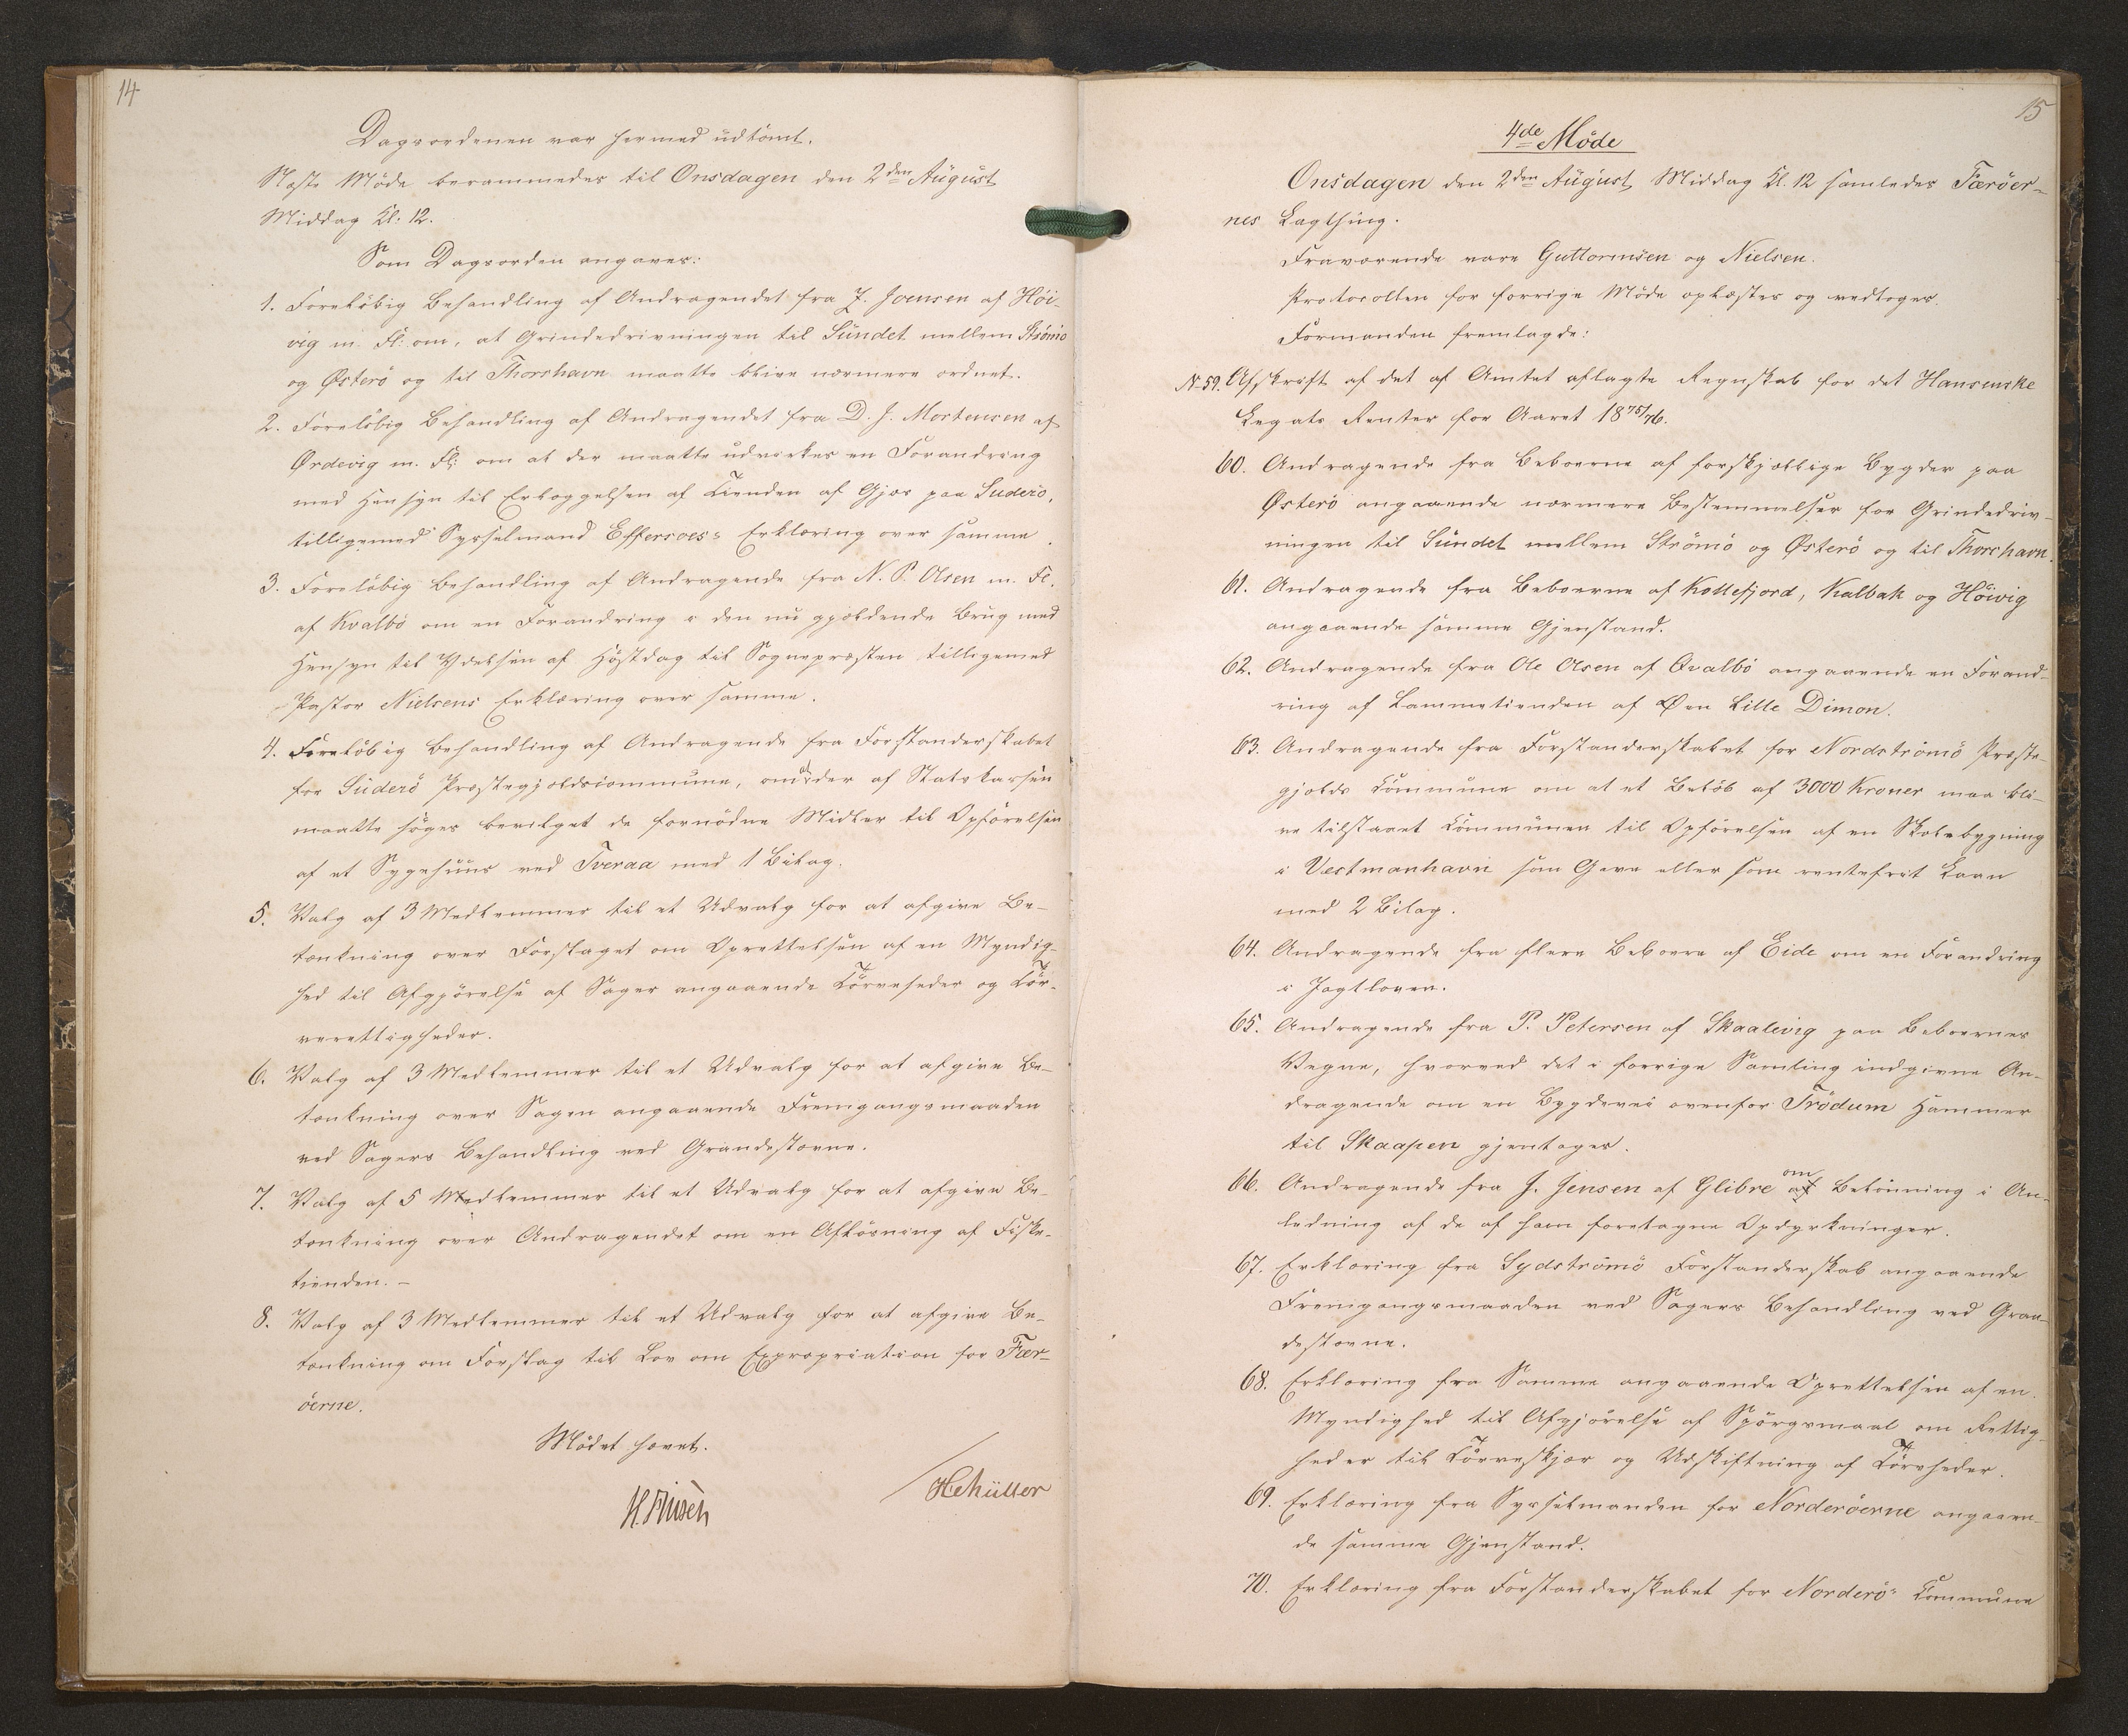 14
Dagsordenen var hermed udtömt.
Næste Möde berammedes til Onsdagen den 2den August
Middag Kl. 12.
Som Dagsorden angaves:
1. Forelöbig Behandling af Andragendet fra J. Joensen af Höi-
vig m. Fl: om, at Grindedrivningen til Sundet mellem Strömö
og Österö og til Thorshavn maatte blive nærmere ordnet.
2. Forelöbig Behandling af Andragendet fra D. J. Mortensen af
Ørdevig m. Fl: om at der maatte udvirkes en Forandring
med Hensyn til Erlæggelsen af Tienden af Gjæs paa Suderö,
tilligemed Sysselmand Effersöes: Erklæring over samme.
3. Forelöbig Behandling af Andragende fra N. P. Olsen m. Fl.
af Kvalbö om en Forandring i den nu gjældende Brug med
Hensyn til Ydelsen af Höstdag til Sognepræsten tilligemed
Pastor Nielsens Erklæring over samme.
4. Forelöbig Behandling af Andragende fra Forstanderskabet
for Suderö Præstegjældscommune, om at der af Statskassen
maatte söges bevilget de fornödne Midler til Opförelsen
af et Sygehuus ved Tveraa med 1 Bilag.
5. Valg af 3 Medlemmer til et Udvalg for at afgive Be-
tænkning over Forslaget om Oprettelsen af en Myndig-
hed til Afgjörelse af Sager angaaende Törveheder og Tör-
verettigheder.
6. Valg af 3 Medlemmer til et Udvalg for at afgive Be-
tænkning over Sagen angaaende Fremgangsmaaden
ved Sagers Behandling ved Grandestævne.
7. Valg af 5 Medlemmer til et Udvalg for at afgive Be-
tænkning over Andragendet om en Aflösning af Fiske-
tienden. –
8. Valg af 3 Medlemmer til et Udvalg for at afgive Be-
tænkning om Forslag til Lov om Expropriation for Fær-
öerne.
Mödet hævet.
HMüller
15
4de Möde
Onsdagen den 2den August Middag Kl. 12 samledes Færöer-
nes Lagthing.
Fraværende vare Guttormsen og Nielsen.
Protocollen for forrige Möde oplæstes og vedtoges.
Formanden fremlagde:
No 59. Afskrift af det af Amtet aflagte Regnskab for det Hansenske
Legats Renter for Aaret 1875/76.
60. Andragende fra Beboerne af forskjællige Bygder paa
Österö angaaende nærmere Bestemmelser for Grindedriv-
ningen til Sundet mellem Strömö og Österö og til Thorshavn.
61. Andragende fra Beboerne af Kollefjord, Kalbak og Höivig
angaaende samme Gjenstand.
62. Andragende fra Ole Olsen af Qvalbö angaaende en Forand-
ring af Lammetienden af Øen Lille Dimon.
63. Andragende fra Forstanderskabet for Nordströmö Præste-
gjælds Commune om at et Belöb af 3000 Kroner maa bli-
ve tilstaaet Communen til Opförelsen af en Skolebygning
i Vestmanhavn som Gave eller som rentefrit Laan
med 2 Bilag.
64. Andragende fra flere Beboere af Eide om en Forandring
i Jagtloven.
65. Andragende fra P. Petersen af Skaalevig paa Beboernes
Vegne, hvorved det i forrige Samling indgivne An-
dragende om en Bygdevei ovenfor Trödum Hammer
til Skaapen gjentages.
66. Andragende fra J. Jensen af Glibre om Belönning i An-
ledning af de af ham foretagne Opdyrkninger.
67. Erklæring fra Sydströmö Forstanderskab angaaende
Fremgangsmaaden ved Sagers Behandling ved Gran-
destævne.
68. Erklæring fra Samme angaaende Oprettelsen af en
Myndighed til Afgjörelse af Spörgsmaal om Rettig-
heder til Törveskjær og Udskiftning af Törveheder.
69. Erklæring fra Sysselmanden for Norderöerne angaaen-
de samme Gjenstand.
70. Erklæring fra Forstanderskabet for Norderö: Commune